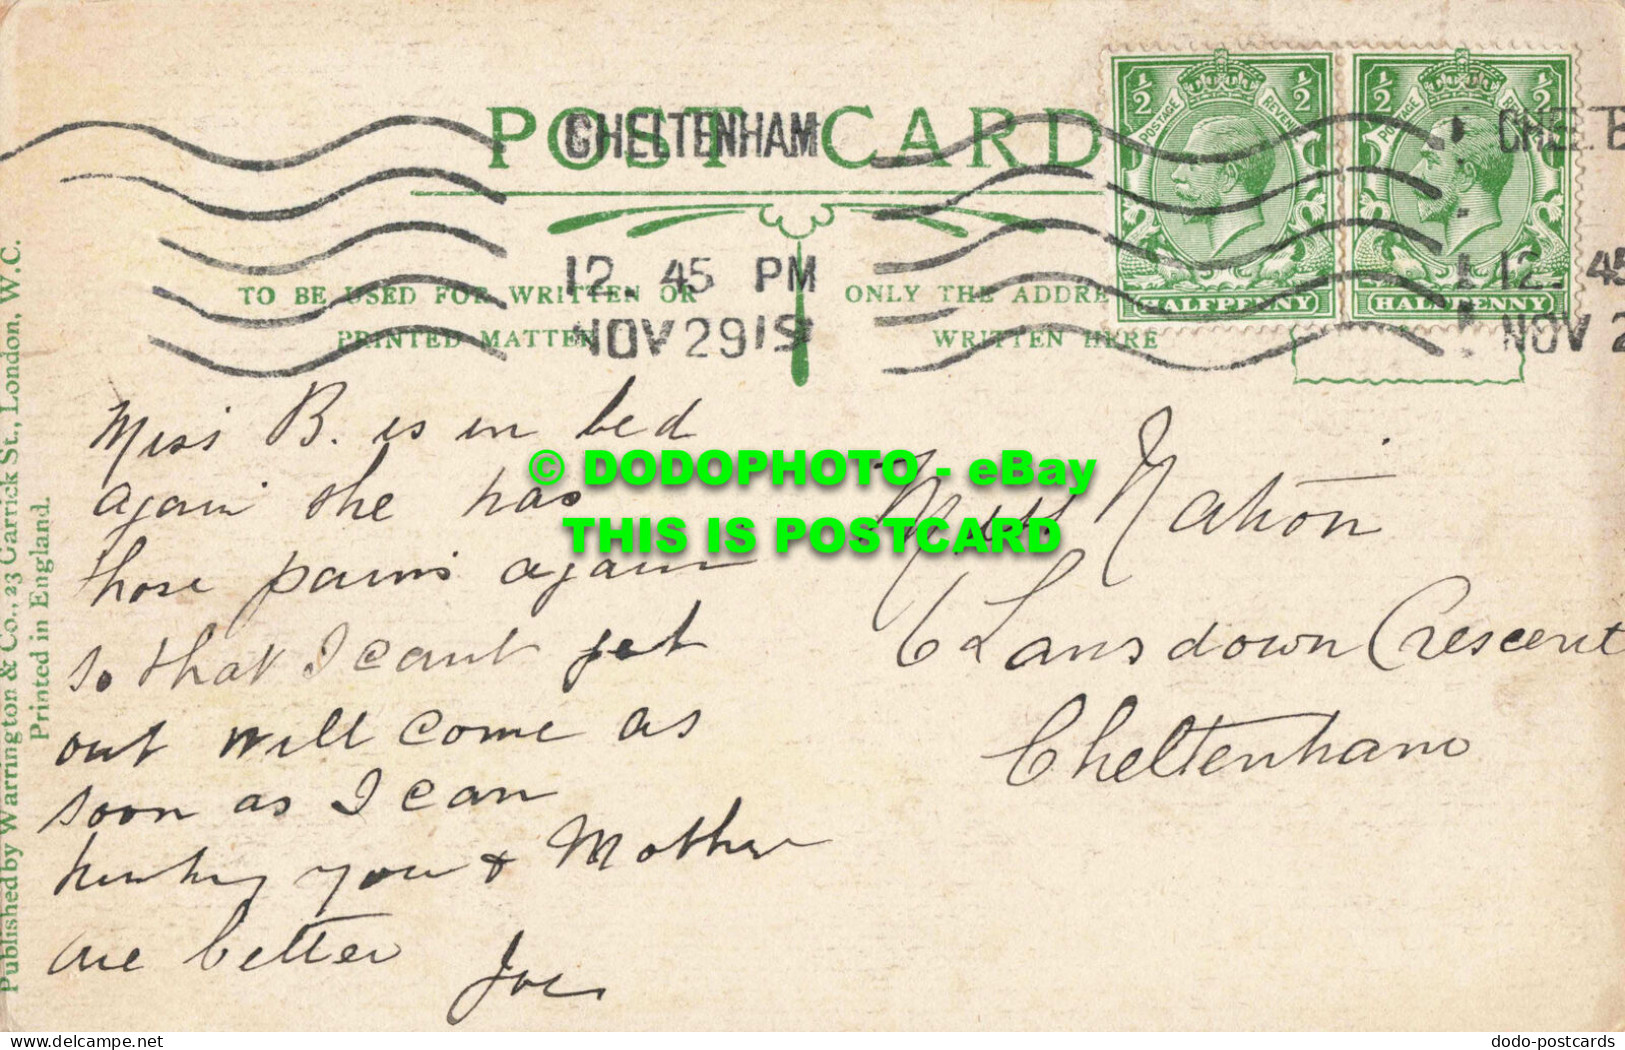 POST CARD
CHELTENHAM
12. 45 PM
NOV 29 19
TO BE USED FOR WRITTEN OR
PRINTED MATTER
ONLY THE ADDRE
WRITTEN HERE
½ ½
POSTAGE REVENUE
HALFPENNY
½ ½
POSTAGE
HALFPENNY
12. 45
NOV 2
Published by Warrington & Co., 23 Garrick St., London, W.C.
Printed in England.
Miss B. is in bed
again she has
those pains again
so that I cant get
out will come as
soon as I can
you & Mother
are better
Joe
Miss Nation
6 Lansdown Crescent
Cheltenham
© DODOPHOTO - eBay
THIS IS POSTCARD
www.delcampe.net
dodo-postcards